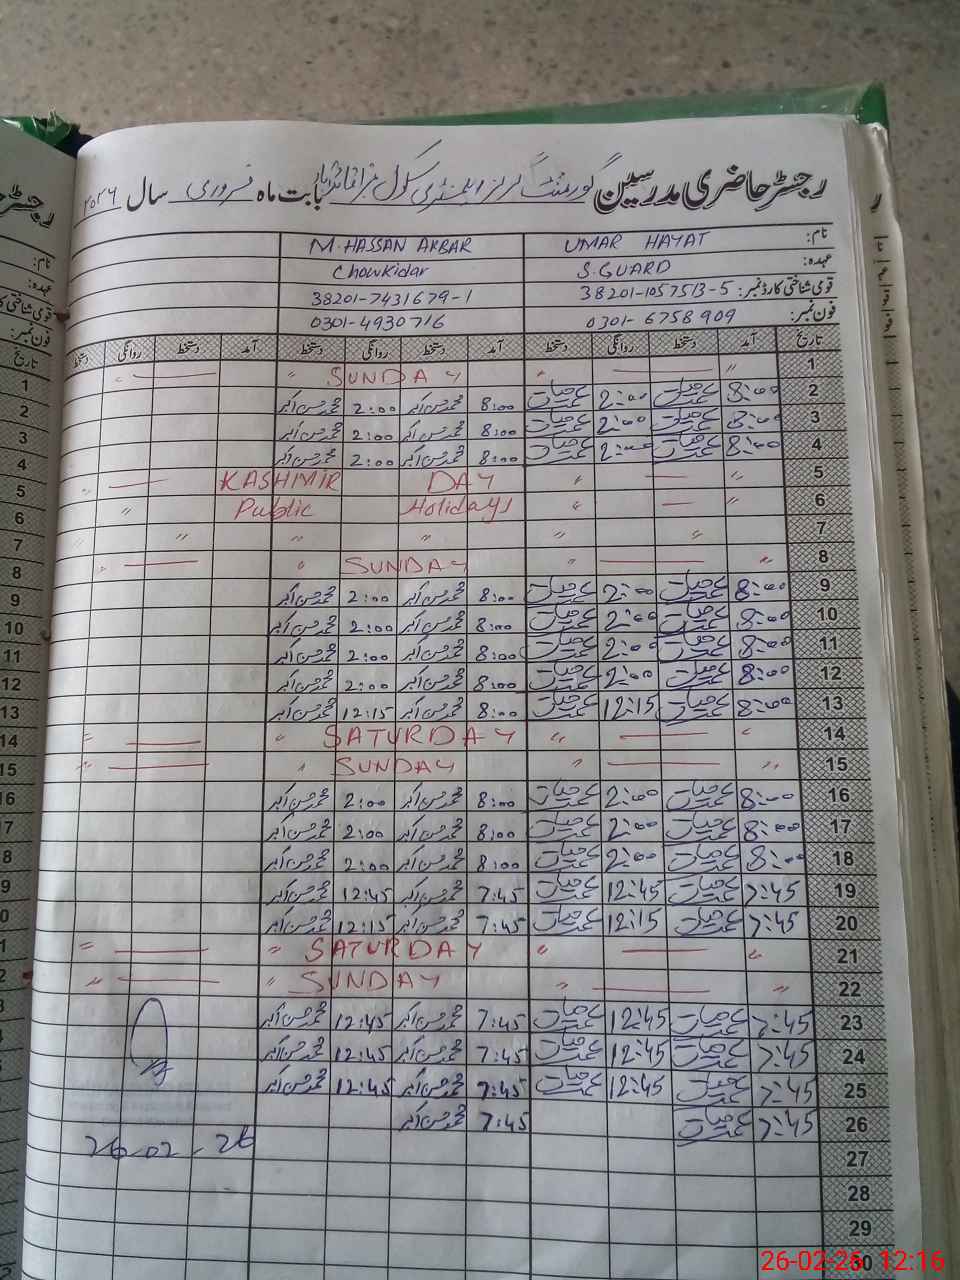 رجسٹر حاضری مدرسین گورنمنٹ گرلز ایلیمنٹری سکول بابت ماہ فروری سال ۲۰۲۶
نام: UMAR HAYAT M. HASSAN AKBAR
عہدہ: S. GUARD Chowkidar
قومی شناختی کارڈ نمبر: 38201-1057513-5 38201-7431679-1
فون نمبر: 0301-6758909 0301-4930716
تاریخ آمد دستخط روانگی دستخط آمد دستخط روانگی دستخط آمد دستخط روانگی دستخط
1 〃 — 〃 SUNDAY 〃 — 〃
2 8:00 عمر حیات 2:00 عمر حیات 8:00 محمد حسن اکبر 2:00 محمد حسن اکبر
3 8:00 عمر حیات 2:00 عمر حیات 8:00 محمد حسن اکبر 2:00 محمد حسن اکبر
4 8:00 عمر حیات 2:00 عمر حیات 8:00 محمد حسن اکبر 2:00 محمد حسن اکبر
5 〃 — 〃 KASHMIR DAY — 〃
6 〃 — 〃 Public Holidays 〃
7 〃 〃 〃 〃 〃 〃
8 〃 — 〃 SUNDAY 〃 — 〃
9 8:00 عمر حیات 2:00 عمر حیات 8:00 محمد حسن اکبر 2:00 محمد حسن اکبر
10 8:00 عمر حیات 2:00 عمر حیات 8:00 محمد حسن اکبر 2:00 محمد حسن اکبر
11 8:00 عمر حیات 2:00 عمر حیات 8:00 محمد حسن اکبر 2:00 محمد حسن اکبر
12 8:00 عمر حیات 2:00 عمر حیات 8:00 محمد حسن اکبر 2:00 محمد حسن اکبر
13 8:00 عمر حیات 12:15 عمر حیات 8:00 محمد حسن اکبر 12:15 محمد حسن اکبر
14 〃 — 〃 SATURDAY 〃 — 〃
15 〃 — SUNDAY 〃 — 〃
16 8:00 عمر حیات 2:00 عمر حیات 8:00 محمد حسن اکبر 2:00 محمد حسن اکبر
17 8:00 عمر حیات 2:00 عمر حیات 8:00 محمد حسن اکبر 2:00 محمد حسن اکبر
18 8:00 عمر حیات 2:00 عمر حیات 8:00 محمد حسن اکبر 2:00 محمد حسن اکبر
19 7:45 عمر حیات 12:45 عمر حیات 7:45 محمد حسن اکبر 12:45 محمد حسن اکبر
20 7:45 عمر حیات 12:15 عمر حیات 7:45 محمد حسن اکبر 12:15 محمد حسن اکبر
21 〃 — 〃 SATURDAY 〃 — 〃
22 〃 — 〃 SUNDAY 〃 — 〃
23 7:45 عمر حیات 12:45 عمر حیات 7:45 محمد حسن اکبر 12:45 محمد حسن اکبر
24 7:45 عمر حیات 12:45 عمر حیات 7:45 محمد حسن اکبر 12:45 محمد حسن اکبر
25 7:45 عمر حیات 12:45 عمر حیات 7:45 محمد حسن اکبر 12:45 محمد حسن اکبر
26 7:45 عمر حیات 7:45 محمد حسن اکبر
26-02-26
27
28
29
30
26-02-26 12:16